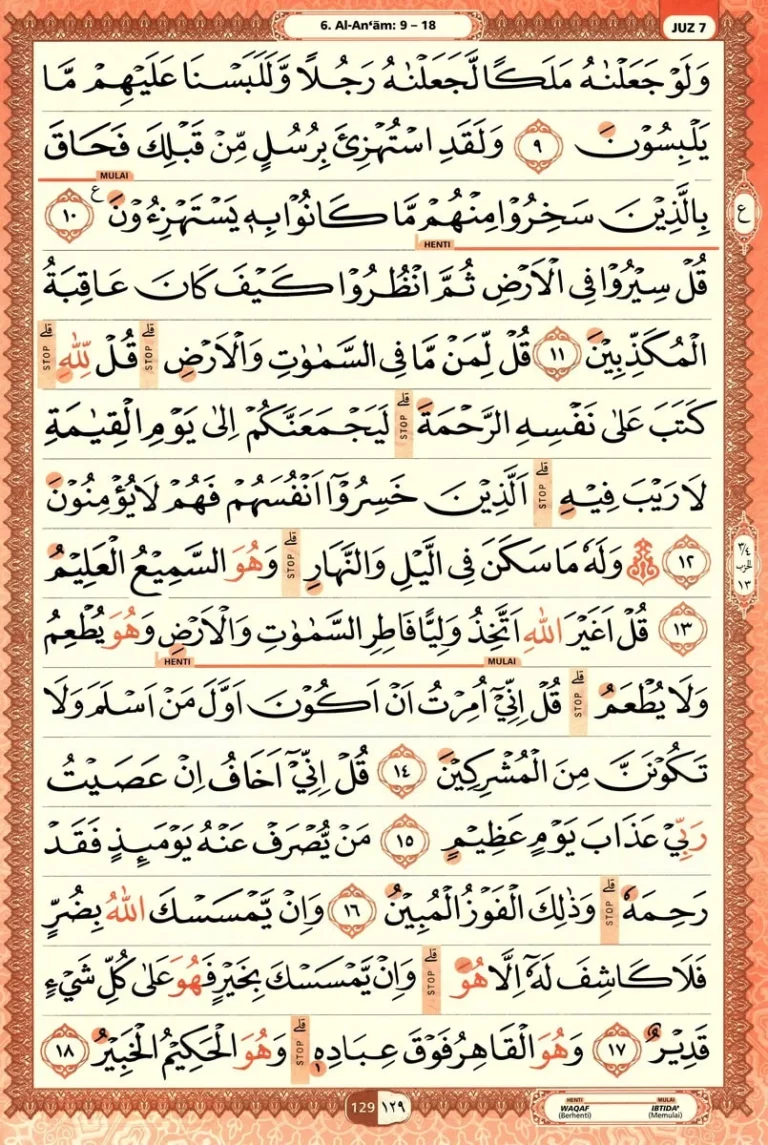 6. Al-An‘ām: 9 – 18
JUZ 7
وَلَوْ جَعَلْنٰهُ مَلَكًا لَّجَعَلْنٰهُ رَجُلًا وَّلَلَبَسْنَا عَلَيْهِمْ مَّا
يَلْبِسُوْنَ ٩ وَلَقَدِ اسْتُهْزِئَ بِرُسُلٍ مِّنْ قَبْلِكَ فَحَاقَ
MULAI
بِالَّذِيْنَ سَخِرُوْا مِنْهُمْ مَّا كَانُوْا بِهٖ يَسْتَهْزِءُوْنَ ࣖ ١٠
ع
HENTI
قُلْ سِيْرُوْا فِى الْاَرْضِ ثُمَّ انْظُرُوْا كَيْفَ كَانَ عَاقِبَةُ
الْمُكَذِّبِيْنَ ١١ قُلْ لِّمَنْ مَّا فِى السَّمٰوٰتِ وَالْاَرْضِ ۗ STOP قُلْ لِّلّٰهِ ۗ STOP
كَتَبَ عَلٰى نَفْسِهِ الرَّحْمَةَ ۗ STOP لَيَجْمَعَنَّكُمْ اِلٰى يَوْمِ الْقِيٰمَةِ
لَا رَيْبَ فِيْهِ ۗ STOP اَلَّذِيْنَ خَسِرُوْٓا اَنْفُسَهُمْ فَهُمْ لَا يُؤْمِنُوْنَ
١٢ ۞ وَلَهٗ مَا سَكَنَ فِى الَّيْلِ وَالنَّهَارِ ۗ STOP وَهُوَ السَّمِيْعُ الْعَلِيْمُ
٣/٤ الحزب ١٣
١٣ قُلْ اَغَيْرَ اللّٰهِ اَتَّخِذُ وَلِيًّا فَاطِرِ السَّمٰوٰتِ وَالْاَرْضِ وَهُوَ يُطْعِمُ
MULAI HENTI
وَلَا يُطْعَمُ ۗ STOP قُلْ اِنِّيْٓ اُمِرْتُ اَنْ اَكُوْنَ اَوَّلَ مَنْ اَسْلَمَ وَلَا
تَكُوْنَنَّ مِنَ الْمُشْرِكِيْنَ ١٤ قُلْ اِنِّيْٓ اَخَافُ اِنْ عَصَيْتُ
رَبِّيْ عَذَابَ يَوْمٍ عَظِيْمٍ ١٥ مَنْ يُّصْرَفْ عَنْهُ يَوْمَىِٕذٍ فَقَدْ
رَحِمَهٗ ۗ STOP وَذٰلِكَ الْفَوْزُ الْمُبِيْنُ ١٦ وَاِنْ يَّمْسَسْكَ اللّٰهُ بِضُرٍّ
فَلَا كَاشِفَ لَهٗٓ اِلَّا هُوَ ۗ STOP وَاِنْ يَّمْسَسْكَ بِخَيْرٍ فَهُوَ عَلٰى كُلِّ شَيْءٍ
قَدِيْرٌ ١٧ وَهُوَ الْقَاهِرُ فَوْقَ عِبَادِهٖ ۗ STOP وَهُوَ الْحَكِيْمُ الْخَبِيْرُ ١٨
129 ١٢٩
HENTI MULAI
WAQAF IBTIDA'
(Berhenti) (Memulai)